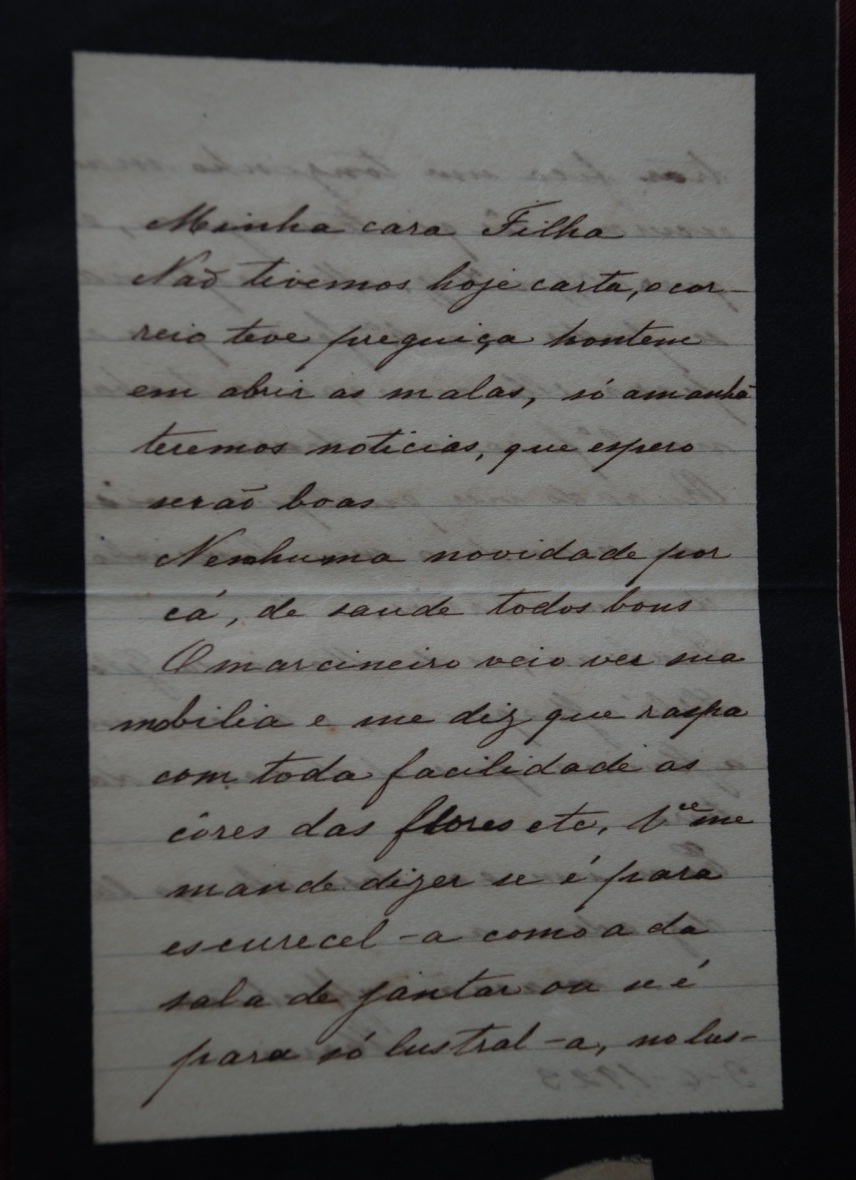 Minha cara Filha
Não tivemos hoje carta, o cor-
reio teve preguiça hontem
em abrir as malas, só amanhã
teremos noticias, que espero
serão boas
Nenhuma novidade por
cá, de saude todos bons
O marcineiro veio ver sua
mobilia e me diz que raspa
com toda facilidade as
côres das flores etc, Vcê me
mande dizer se é para
escurecel-a como a da
sala de jantar ou se é
para só lustral-a, no lus-